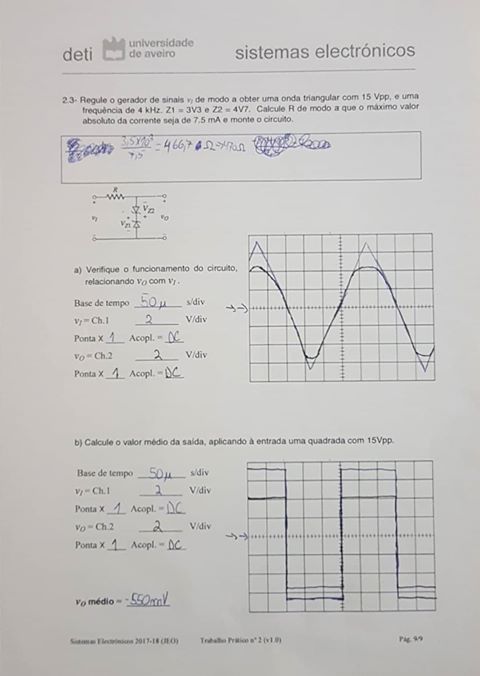 deti universidade de aveiro sistemas electrónicos
2.3- Regule o gerador de sinais vI de modo a obter uma onda triangular com 15 Vpp, e uma
frequência de 4 kHz. Z1 = 3V3 e Z2 = 4V7. Calcule R de modo a que o máximo valor
absoluto da corrente seja de 7.5 mA e monte o circuito.
= 466,7 Ω → 470 Ω
R
vI VZ2 vO
VZ1
a) Verifique o funcionamento do circuito,
relacionando vO com vI .
Base de tempo 50μ s/div
vI = Ch.1 2 V/div
Ponta X 1 Acopl. = DC
vO = Ch.2 2 V/div
Ponta X 1 Acopl. = DC
b) Calcule o valor médio da saída, aplicando à entrada uma quadrada com 15Vpp.
Base de tempo 50μ s/div
vI = Ch.1 2 V/div
Ponta X 1 Acopl. = DC
vO = Ch.2 2 V/div
Ponta X 1 Acopl. = DC
vO médio = -550mV
Sistemas Electrónicos 2017-18 (JEO) Trabalho Prático nº 2 (v1.0) Pág. 9/9